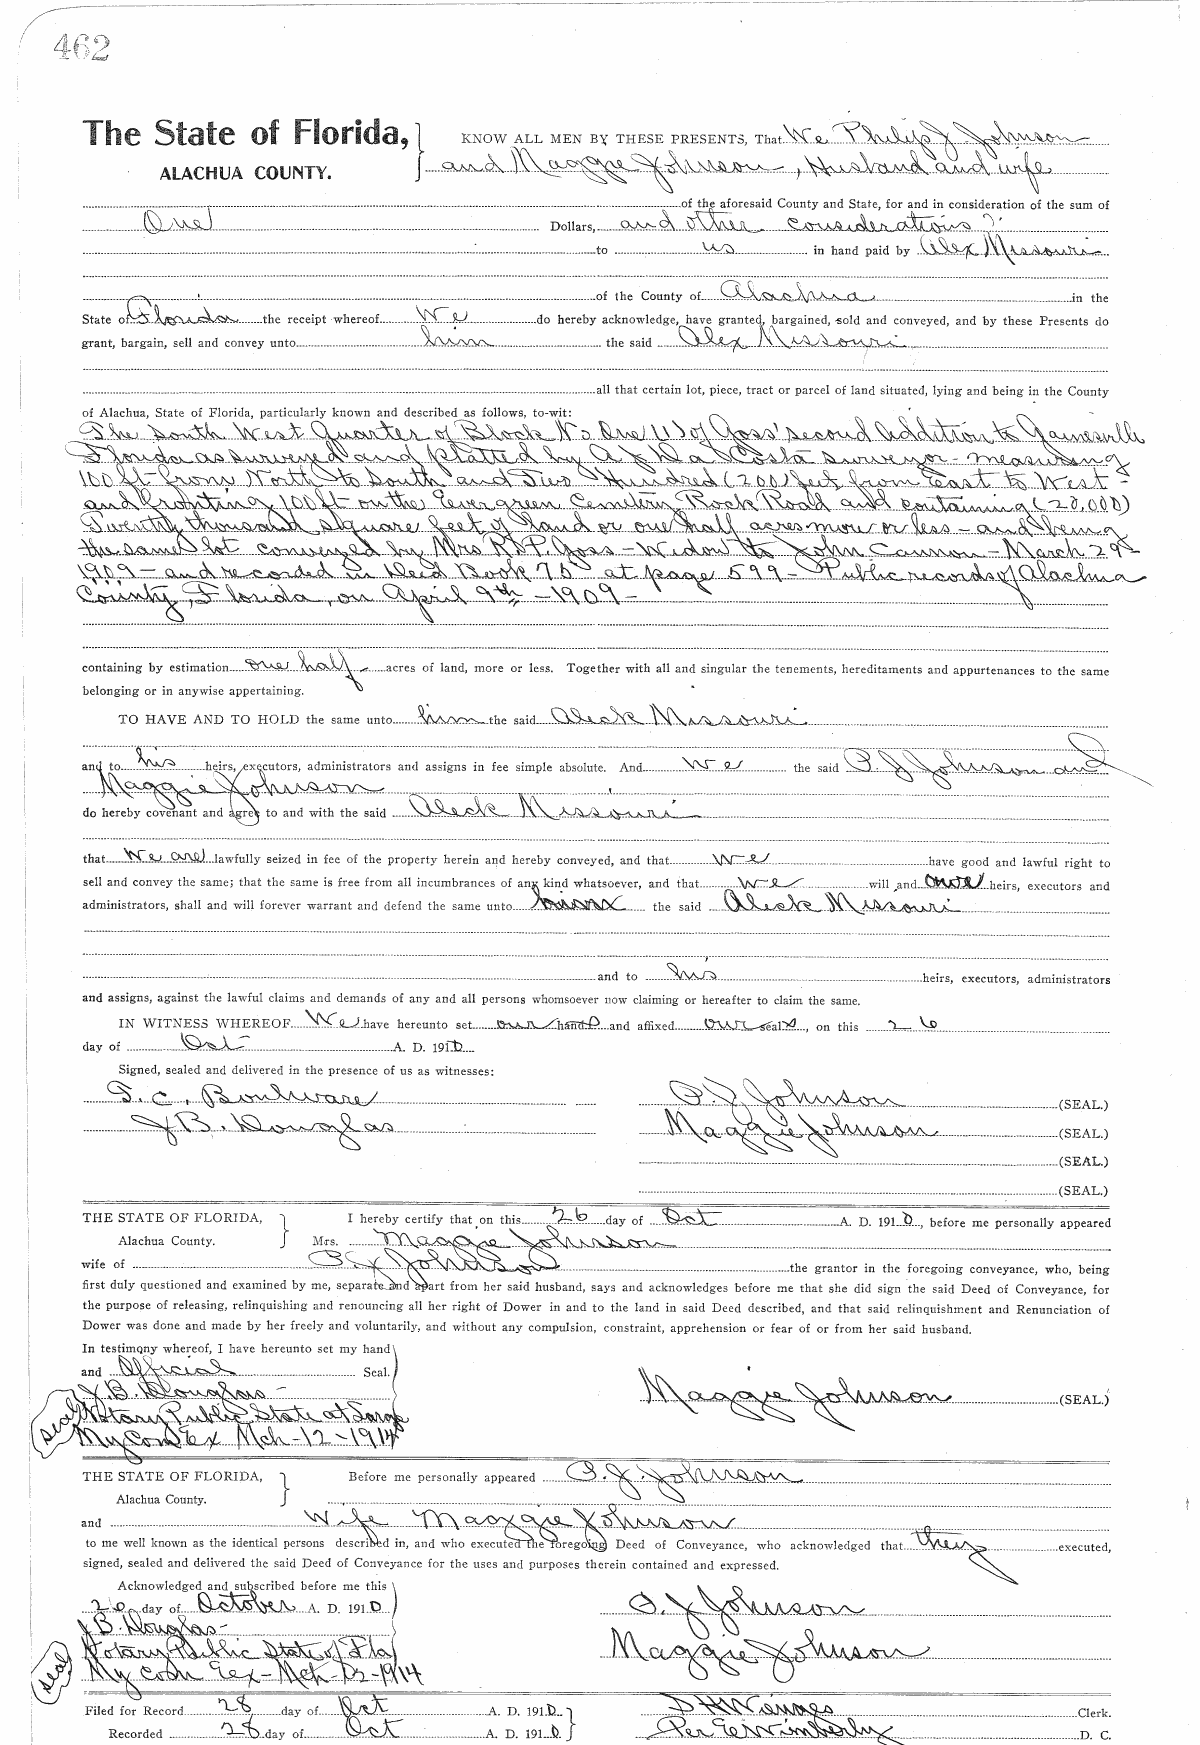 462
The State of Florida, KNOW ALL MEN BY THESE PRESENTS, That We Philip J Johnson
ALACHUA COUNTY. and Maggie Johnson, Husband and wife
of the aforesaid County and State, for and in consideration of the sum of
One Dollars, and other considerations
to us in hand paid by Alex Missouri
of the County of Alachua in the
State of Florida the receipt whereof We do hereby acknowledge, have granted, bargained, sold and conveyed, and by these Presents do
grant, bargain, sell and convey unto him the said Alex Missouri
all that certain lot, piece, tract or parcel of land situated, lying and being in the County
of Alachua, State of Florida, particularly known and described as follows, to-wit:
The South West Quarter of Block No One (1) of Goss' second Addition to Gainesville
Florida as surveyed and platted by A J Da Costa surveyor - measuring
100 ft from North to South and Two Hundred (200) feet from East to West -
and fronting 100 ft on the Evergreen Cemetery Rock Road and containing (20.000)
Twenty thousand square feet of land or one half acres more or less - and being
the same lot conveyed by Mrs R.S.P. Goss - Widow to John Cannon - March 29th
1909 - and recorded in Deed Book 75 at page 599 - Public records of Alachua
County, Florida, on April 9th - 1909 -
containing by estimation one half acres of land, more or less. Together with all and singular the tenements, hereditaments and appurtenances to the same
belonging or in anywise appertaining.
TO HAVE AND TO HOLD the same unto him the said Aleck Missouri
and to his heirs, executors, administrators and assigns in fee simple absolute. And we the said P. J Johnson and
Maggie Johnson
do hereby covenant and agree to and with the said Aleck Missouri
that We are lawfully seized in fee of the property herein and hereby conveyed, and that we have good and lawful right to
sell and convey the same; that the same is free from all incumbrances of any kind whatsoever, and that we will and our heirs, executors and
administrators, shall and will forever warrant and defend the same unto the said Aleck Missouri
and to his heirs, executors, administrators
and assigns, against the lawful claims and demands of any and all persons whomsoever now claiming or hereafter to claim the same.
IN WITNESS WHEREOF We have hereunto set our hand and affixed our seals, on this 26
day of Oct A. D. 1910
Signed, sealed and delivered in the presence of us as witnesses:
T. C. Boulware P. J Johnson (SEAL.)
J B. Douglas Maggie Johnson (SEAL.)
(SEAL.)
(SEAL.)
THE STATE OF FLORIDA, I hereby certify that on this 26 day of Oct A. D. 1910, before me personally appeared
Alachua County. Mrs. Maggie Johnson
wife of P. J Johnson the grantor in the foregoing conveyance, who, being
first duly questioned and examined by me, separate and apart from her said husband, says and acknowledges before me that she did sign the said Deed of Conveyance, for
the purpose of releasing, relinquishing and renouncing all her right of Dower in and to the land in said Deed described, and that said relinquishment and Renunciation of
Dower was done and made by her freely and voluntarily, and without any compulsion, constraint, apprehension or fear of or from her said husband.
In testimony whereof, I have hereunto set my hand
and Official Seal.
J. B. Douglas - Maggie Johnson (SEAL.)
seal Notary Public State at Large
My Com Ex Mch - 12 - 1914
THE STATE OF FLORIDA, Before me personally appeared P. J. Johnson
Alachua County.
and Wife Maggie Johnson
to me well known as the identical persons described in, and who executed the foregoing Deed of Conveyance, who acknowledged that they executed,
signed, sealed and delivered the said Deed of Conveyance for the uses and purposes therein contained and expressed.
Acknowledged and subscribed before me this
26 day of October A. D. 1910 P. J Johnson
J B. Douglas -
Notary Public State of Fla Maggie Johnson
seal My Com Eex - Mch - 12 - 1914
Filed for Record 28 day of Oct A. D. 1910. S H Wienges Clerk.
Recorded 28 day of Oct A. D. 1910. Per E Wimberly D. C.